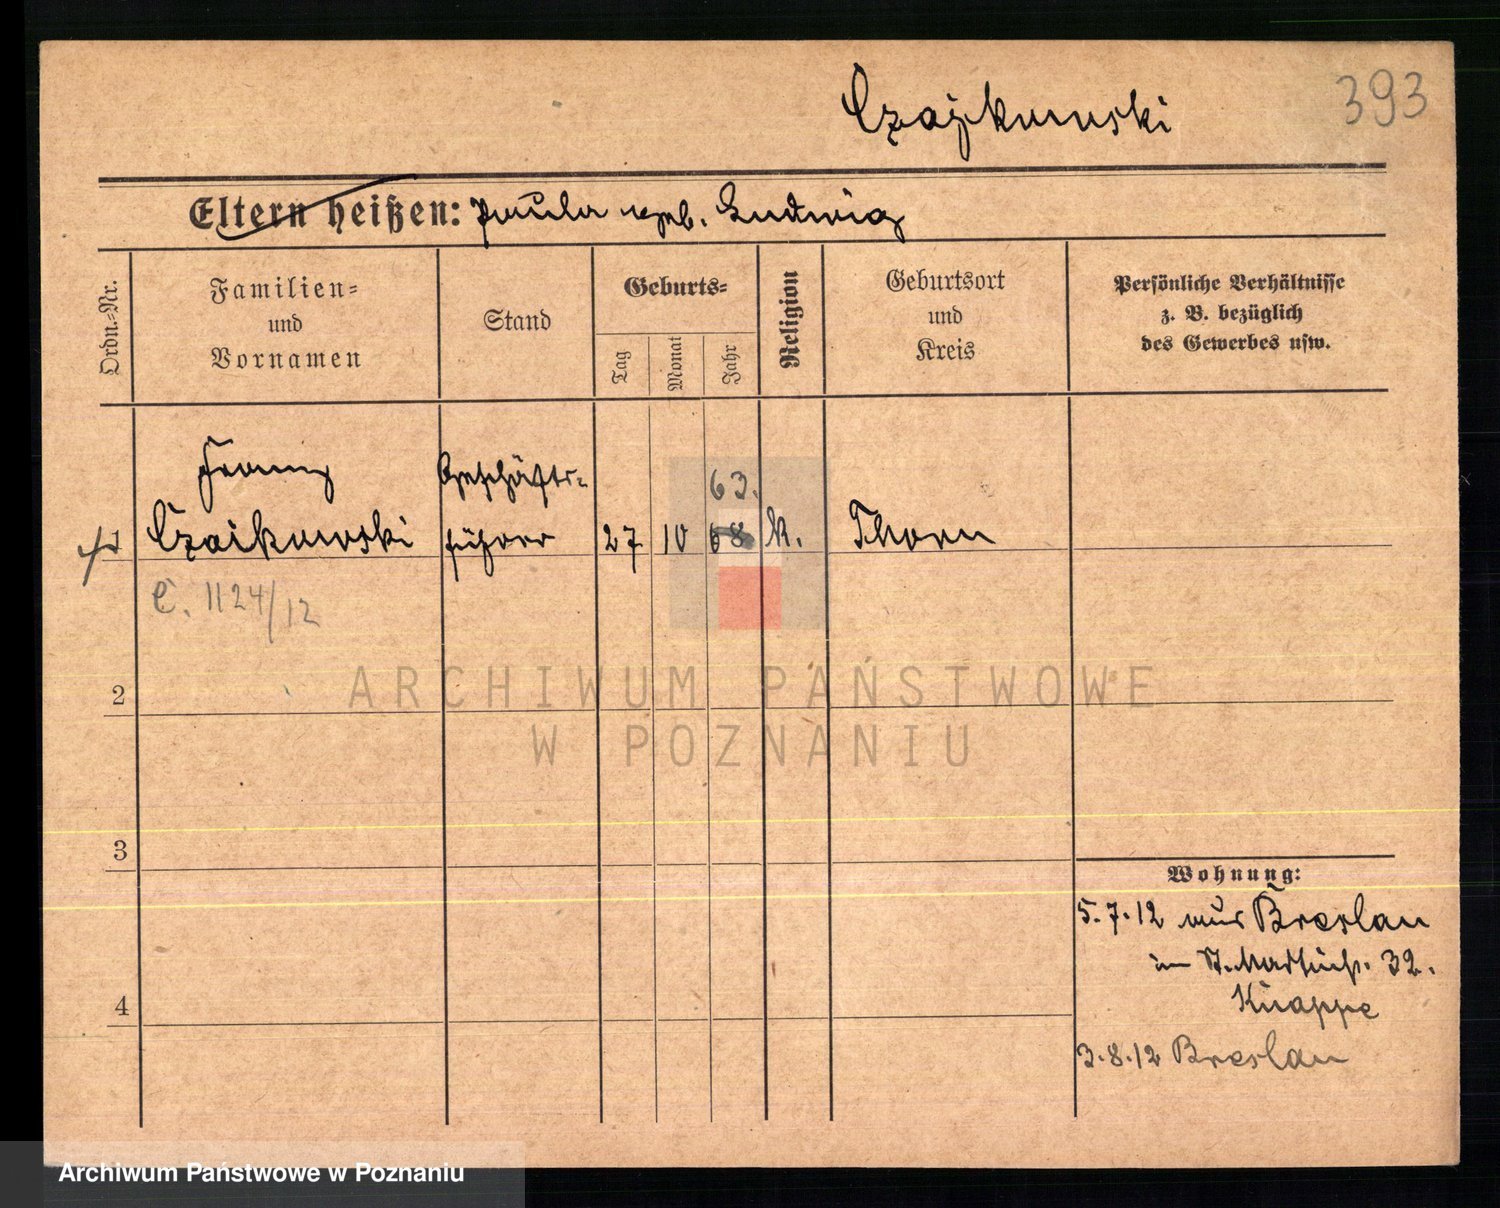 Czajkowski
393
Eltern heißen: Paula geb. Ludwig
Ordn.-Nr.
Familien-
und
Vornamen
Stand
Geburts-
Tag
Monat
Jahr
Religion
Geburtsort
und
Kreis
Persönliche Verhältnisse
z. B. bezüglich
des Gewerbes usw.
Franz Geschäfts- 63.
1 Czaikowski führer 27 10 68 k. Thorn
C. 1124/12
ARCHIWUM PAŃSTWOWE
W POZNANIU
2
3
4
Wohnung:
5.7.12 aus Breslau
in St. Martinstr. 32.
Knappe
3.8.12 Breslau
Archiwum Państwowe w Poznaniu